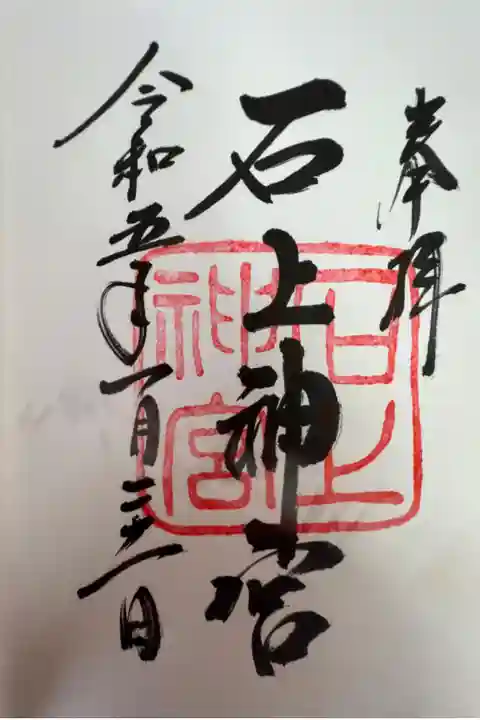 奉拝
石上神宮
令和五年一月三十一日
石上神宮